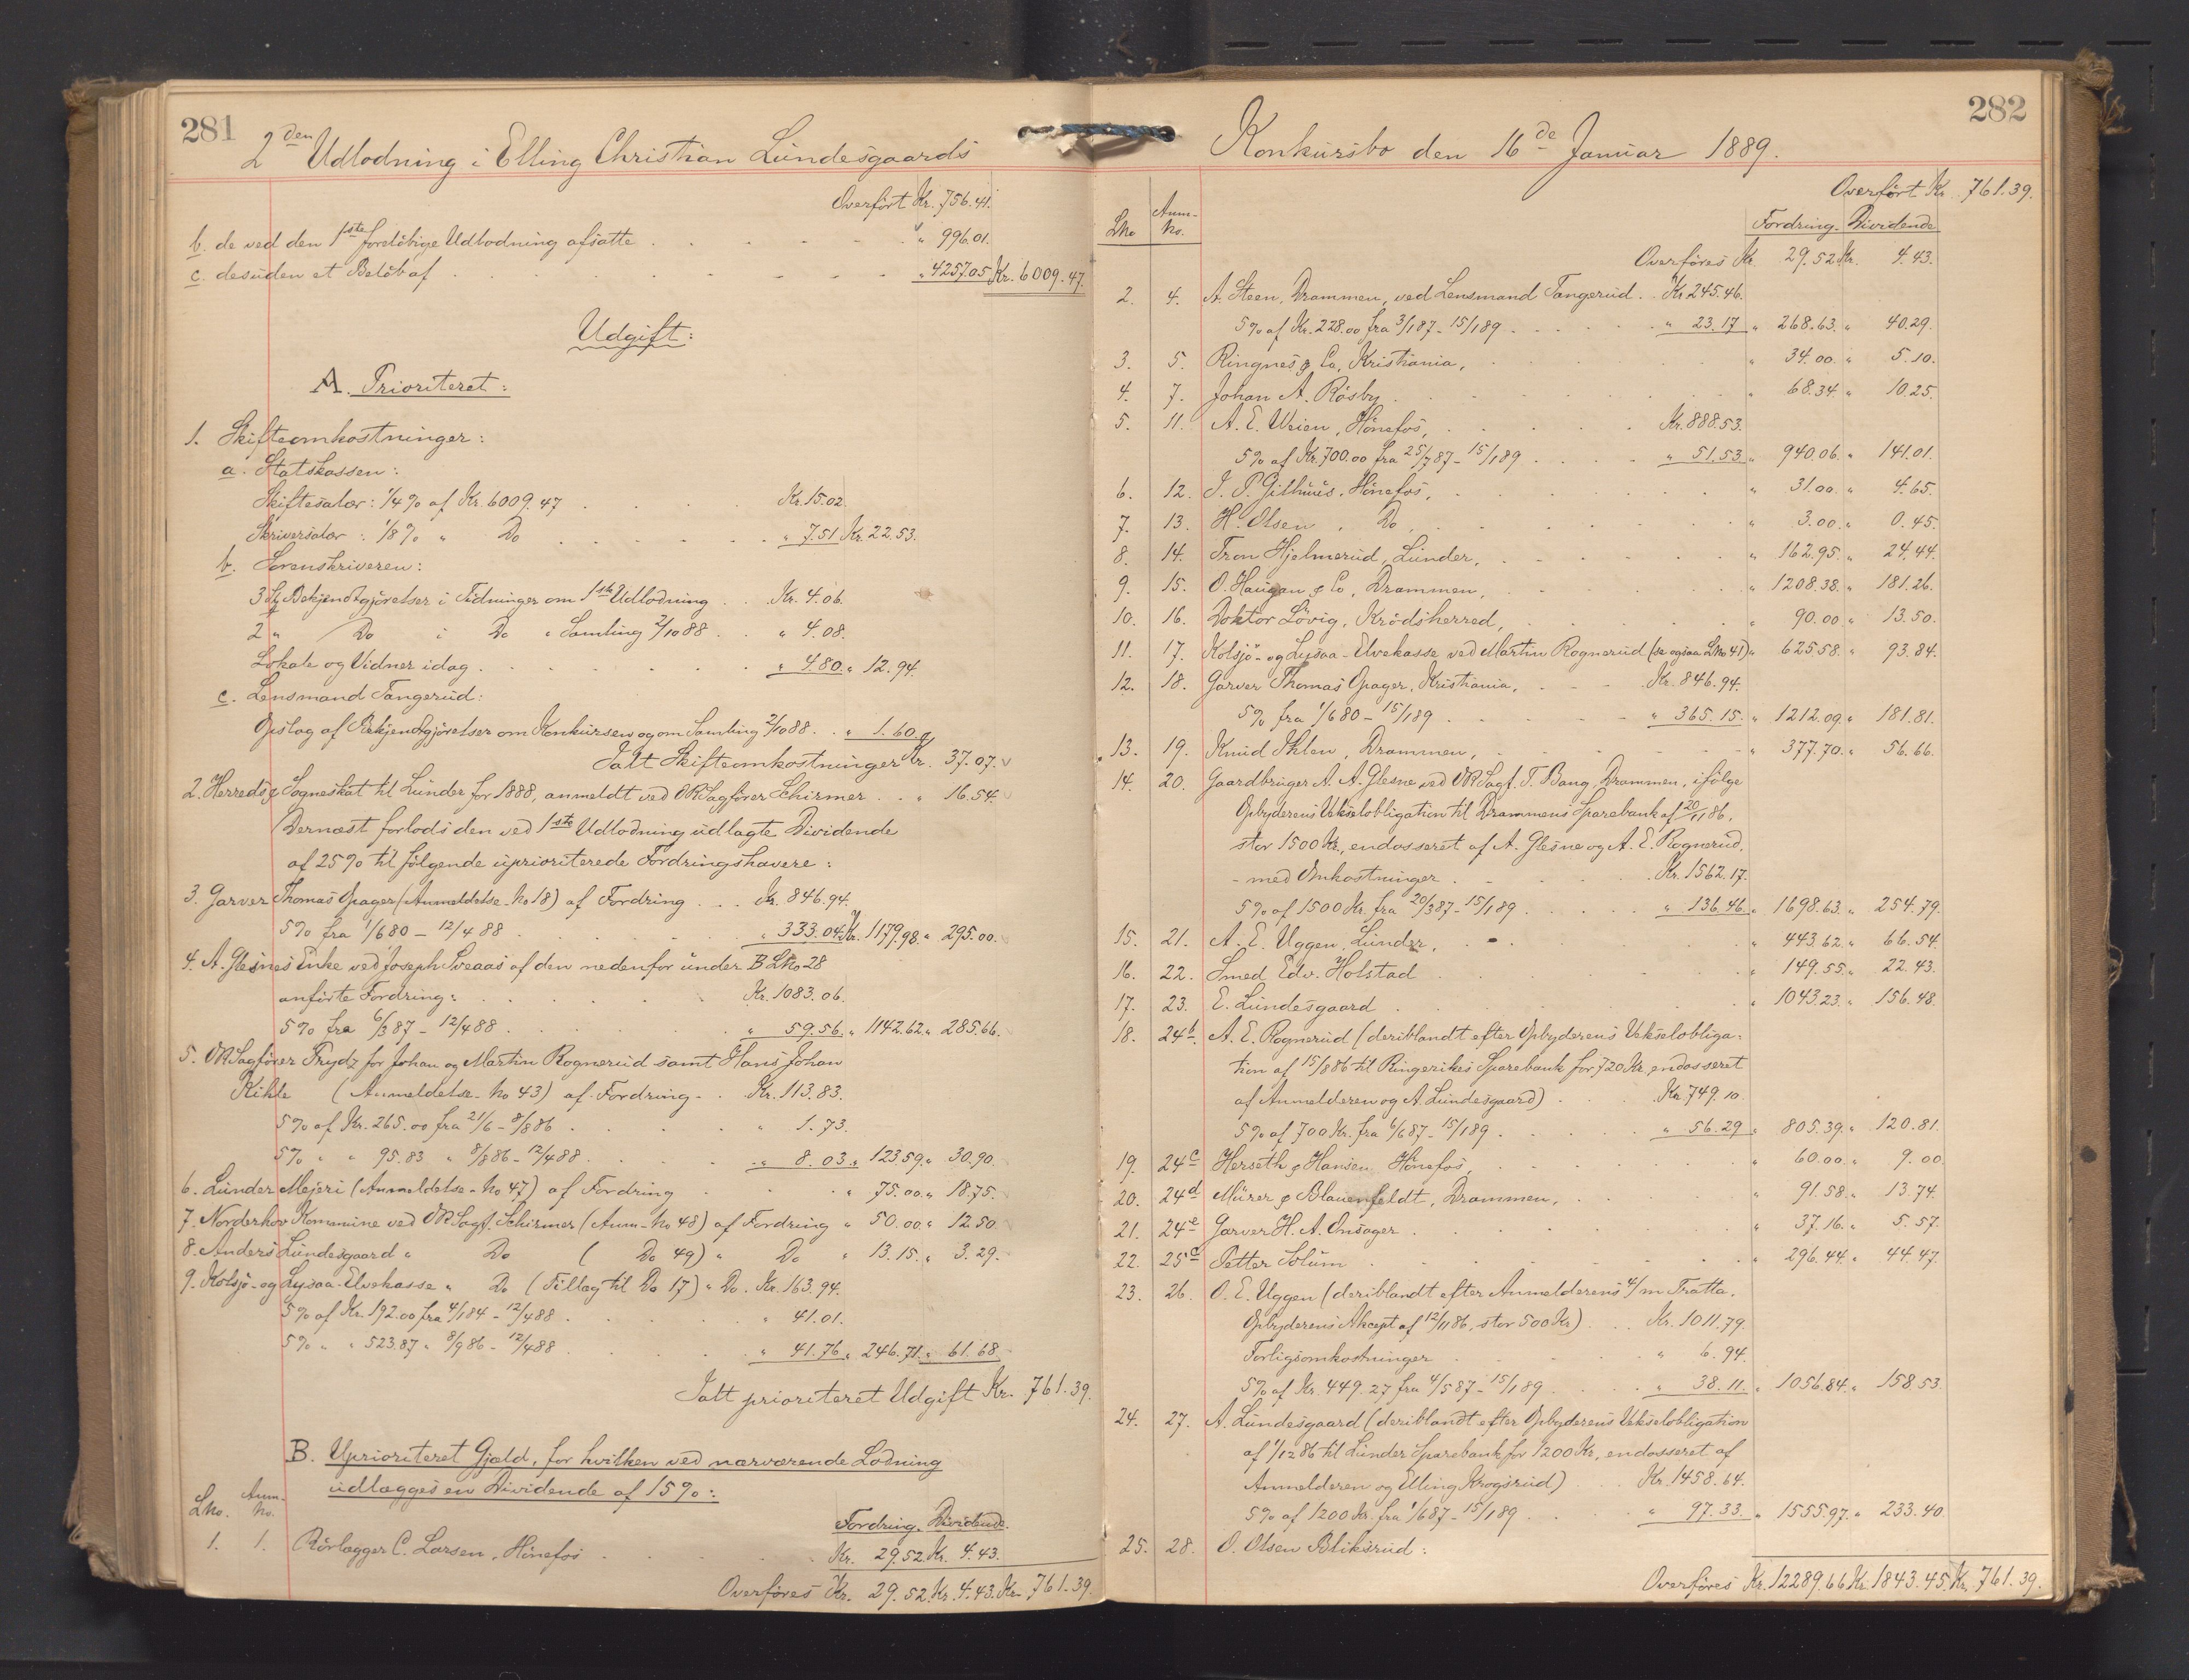 281
2den Udlodning i Elling Christian Lundesgaards
Overført Kr. 756.41.
b. de ved den 1ste foreløbige Udlodning afsatte . . . " 996.01.
c. desuden et Beløb af . . . " 4257.05 Kr. 6009.47.
Udgift:
A. Prioriteret:
1. Skifteomkostninger:
a. Statskassen:
Skiftesalær: 1/4 % af Kr. 6009.47 . . . Kr. 15.02.
Skriversalær: 1/8 % " Do . . . " 7.51 Kr. 22.53.
b. Sorenskriveren:
3 Bekjendtgjørelser i Tidninger om 1ste Udlodning . . Kr. 4.06.
2 " Do i Do " Samling 2/10 88 . . " 4.08.
Lokale og Vidner idag . . . " 4.80 " 12.94.
c. Lensmand Tangerud:
Opslag af Bekjendtgjørelser om Konkursen og om Samling 2/10 88 . . " 1.60.
Ialt Skifteomkostninger Kr. 37.07.
2. Herreds & Sogneskat til Lunder for 1888, anmeldt ved ORSagfører Schirmer . . " 16.54.
Dernæst forlods den ved 1ste Udlodning udlagte Dividende
af 25 % til følgende uprioriterede Fordringshavere:
3. Garver Thomas Opager (Anmeldelse-No 18) af Fordring . . . Kr. 846.94.
5 % fra 1/6 80 - 12/4 88 . . . " 333.04 Kr. 1179.98 " 295.00.
4. A. Glesnes Enke ved Joseph Sveaas af den nedenfor under B LNo 28
anførte Fordring: . . . Kr. 1083.06.
5 % fra 6/3 87 - 12/4 88 . . . " 59.56 " 1142.62 " 285.66.
5. ORSagfører Frydz for Johan og Martin Rognerud samt Hans Johan
Kihle (Anmeldelse-No 43) af Fordring - . Kr. 113.83.
5 % af Kr. 265.00 fra 21/6 - 8/8 86 . . . " 1.73.
5 % " " 95.83 " 8/8 86 - 12/4 88 . . . " 8.03 " 123.59 " 30.90.
6. Lunder Mejeri (Anmeldelse-No 47) af Fordring . . . " 75.00 " 18.75.
7. Norderhov Kommune ved ORSagf. Schirmer (Anm-No 48) af Fordring " 50.00 " 12.50.
8. Anders Lundesgaard " Do ( Do 49) " Do " 13.15 " 3.29.
9. Kolsjø- og Lysaa-Elvekasse " Do (Tillæg til Do 17) " Do . Kr. 163.94.
5 % af Kr. 192.00 fra 4/1 84 - 12/4 88 . . . " 41.01.
5 % " " 523.87 " 8/9 86 - 12/4 88 . . . " 41.76 " 246.71 " 61.68.
Ialt prioriteret Udgift Kr. 761.39.
B. Uprioriteret Gjæld, for hvilken ved nærværende Lodning
udlægges en Dividende af 15 %:
LNo. Anm-No. Fordring. Dividende.
1. 1. Rørlægger C. Larsen, Hønefos . . . Kr. 29.52 Kr. 4.43.
Overføres Kr. 29.52 Kr. 4.43. Kr. 761.39.
282
Konkursbo den 16de Januar 1889.
Overført Kr. 761.39.
LNo Anm-No. Fordring. Dividende.
Overføres Kr 29.52 Kr. 4.43.
2. 4. A. Steen, Drammen, ved Lensmand Tangerud . Kr. 245.46.
5 % af Kr. 228.00 fra 3/1 87 - 15/1 89 . . . " 23.17 " 268.63 " 40.29.
3. 5. Ringnes & Co, Kristiania, . . . " 34.00 " 5.10.
4. 7. Johan A. Røsby . . . " 68.34 " 10.25.
5. 11. A. E. Weien, Hønefos, . . . Kr. 888.53.
5 % af Kr. 700.00 fra 25/7 87 - 15/1 89 . . . " 51.53 " 940.06 " 141.01.
6. 12. J. P. Gilhuus, Hønefos, . . . " 31.00 " 4.65.
7. 13. H. Olsen, Do, . . . " 3.00 " 0.45.
8. 14. Tron Hjelmerud, Lunder, . . . " 162.95 " 24.44.
9. 15. O. Haugan & Co, Drammen, . . . " 1208.38 " 181.26.
10. 16. Doktor Løvig, Krødsherred, . . . " 90.00 " 13.50.
11. 17. Kolsjø- og Lysaa-Elvekasse ved Martin Rognerud (se ogsaa LNo 41) " 625.58 " 93.84.
12. 18. Garver Thomas Opager, Kristiania, . . . Kr. 846.94.
5 % fra 1/6 80 - 15/1 89 . . . " 365.15 " 1212.09 " 181.81.
13. 19. Knud Ihlen, Drammen, . . . " 377.70 " 56.66.
14. 20. Gaardbruger A. A. Glesne ved ORSagf. T. Bang, Drammen, ifølge
Opbyderens Vekselobligation til Drammens Sparebank af 20/11 86,
stor 1500 Kr., endosseret af A. Glesne og A. E. Rognerud,
- med Omkostninger . . . Kr. 1562.17.
5 % af 1500 Kr. fra 20/3 87 - 15/1 89 . . . " 136.46 " 1698.63 " 254.79.
15. 21. A. E. Uggen, Lunder, . . . " 443.62 " 66.54.
16. 22. Smed Edv. Holstad . . . " 149.55 " 22.43.
17. 23. E. Lundesgaard . . . " 1043.23 " 156.48.
18. 24b. A. E. Rognerud (deriblandt efter Opbyderens Vekselobliga-
tion af 15/8 86 til Ringerikes Sparebank for 720 Kr, endosseret
af Anmelderen og A. Lundesgaard) . . Kr. 749.10.
5 % af 700 Kr. fra 6/6 87 - 15/1 89 . . . " 56.29 " 805.39 " 120.81.
19. 24c Herseth & Hansen, Hønefos, . . . " 60.00 " 9.00
20. 24d Mürer & Blauenfeldt, Drammen, . . . " 91.58 " 13.74.
21. 24e Garver H. A. Onsager . . . " 37.16 " 5.57.
22. 25a Petter Solum . . . " 296.44 " 44.47.
23. 26. O. E. Uggen (deriblandt efter Anmelderens 4/m Tratta,
Opbyderens Akcept af 12/11 86, stor 500 Kr.) . . . Kr. 1011.79.
Forligsomkostninger . . . " 6.94.
5 % af Kr. 449.27 fra 4/5 87 - 15/1 89 . . . " 38.11 " 1056.84 " 158.53.
24. 27. A. Lundesgaard (deriblandt efter Opbyderens Vekselobligation
af 1/12 86 til Lunder Sparebank for 1200 Kr, endosseret af
Anmelderen og Elling Krogsrud) . . Kr. 1458.64.
5 % af 1200 Kr. fra 1/6 87 - 15/1 89 . . . " 97.33 " 1555.97 " 233.40.
25. 28. O. Olsen Bliksrud:
Overføres Kr. 12289.66 Kr. 1843.45. Kr. 761.39.